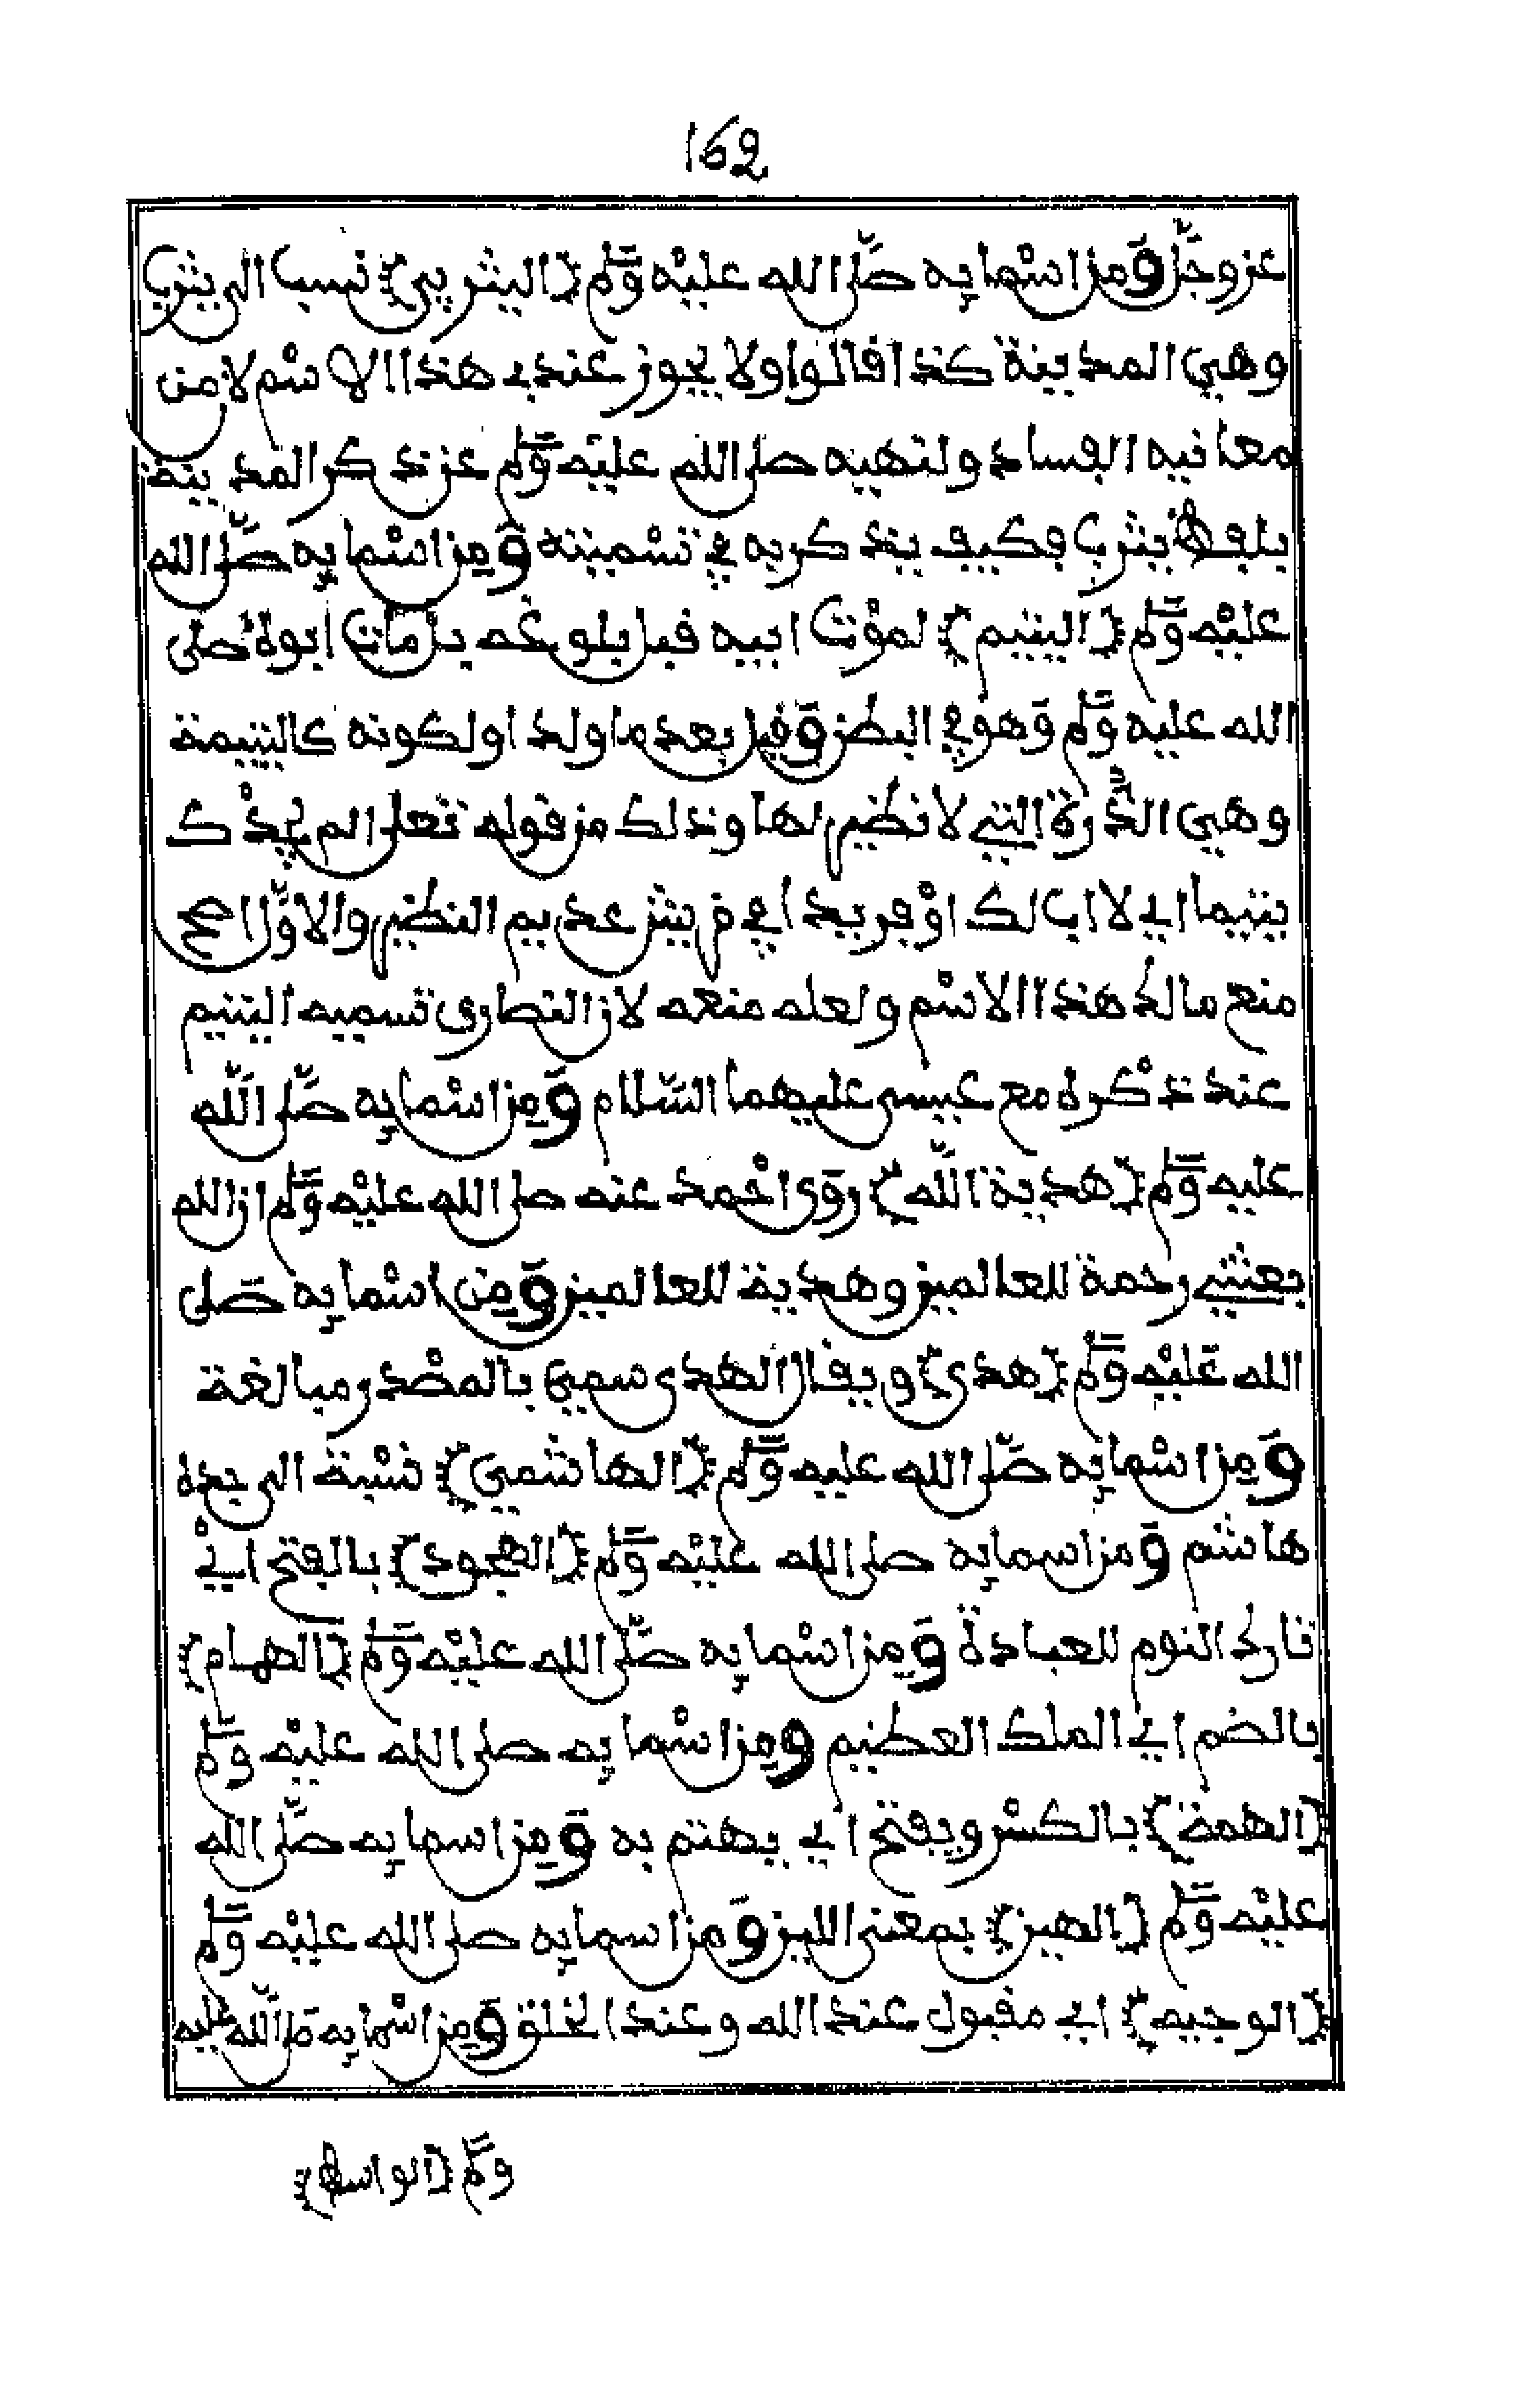 162
عز وجل ومن اسمايه صلى الله عليه وسلم {اليثربي} نسب الى يثرب
وهي المدينة كذا قالوا ولا يجوز عندي هذا الاسم لا من
معانيه الفساد ولنهيه صلى الله عليه وسلم عن ذكر المدينة
بلفظ يثرب فكيف يذكر به في تسميته ومن اسمايه صلى الله
عليه وسلم {اليتيم} لموت ابيه قبل بلوغه بل مات ابوه صلى
الله عليه وسلم وهو في البطن وقيل بعد ما ولد او لكونه كاليتيمة
وهي الدرة التي لا نظيم لها وذلك من قوله تعلى الم يجدك
يتيما اي لا اب لك او فريدا في قريش عديم النظيم والاول اصح
منع مالك هذا الاسم ولعله منعه لان النصارى تسميه اليتيم
عند ذكره مع عيسى عليهما السلام ومن اسمايه صلى الله
عليه وسلم {هدية الله} روى احمد عنه صلى الله عليه وسلم ان الله
بعثني رحمة للعالمين وهدية للعالمين ومن اسمايه صلى
الله عليه وسلم {هدى} ويقال الهدى سمي بالمصدر مبالغة
ومن اسمايه صلى الله عليه وسلم {الهاشمي} نسبة الى جده
هاشم ومن اسمايه صلى الله عليه وسلم {الهجود} بالفتح اي
تارك النوم للعبادة ومن اسمايه صلى الله عليه وسلم {الهمام}
بالضم اي الملك العظيم ومن اسمايه صلى الله عليه وسلم
{الهمة} بالكسر ويفتح اي يهتم به ومن اسمايه صلى الله
عليه وسلم {الهين} بمعنى اللين ومن اسمايه صلى الله عليه وسلم
{الوجيه} اي مقبول عند الله وعند الخلق ومن اسمايه صلى الله عليه
وسلم {الواسط}